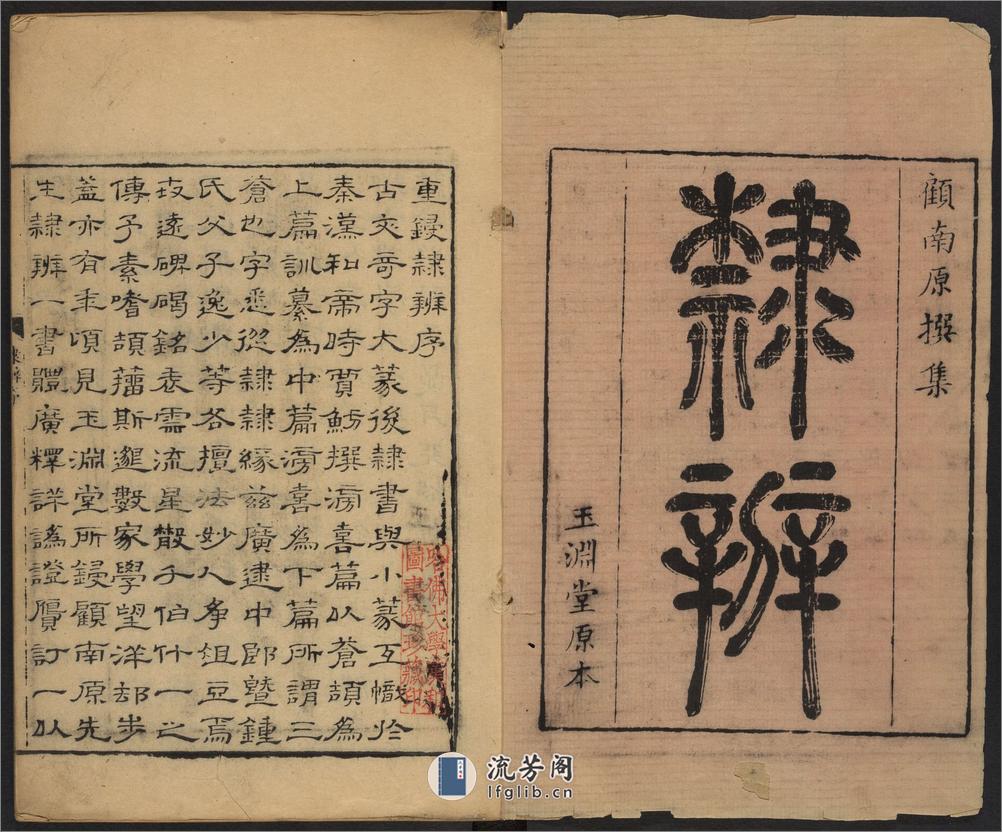 顧南原撰集
隸辨
玉淵堂原本
重鋟隸辨序
古文奇字大篆後隸書與小篆互幟於
秦漢和帝時賈魴撰滂喜篇以蒼頡為
上篇訓纂為中篇滂喜為下篇所謂三
蒼也字悉從隸隸緣茲廣逮中郎暨鍾
氏父子逸少等各擅法妙人爭俎豆焉
攷遠碑碣銘表霝流星散千伯什一之
傳予素嗜頡籀斯邈數家學望洋卻步
蓋亦有年頃見玉淵堂所鋟顧南原先
生隸辨一書體廣釋詳譌證贗訂一以
哈佛大學
圖書館珍藏印
流芳阁
lfglib.cn